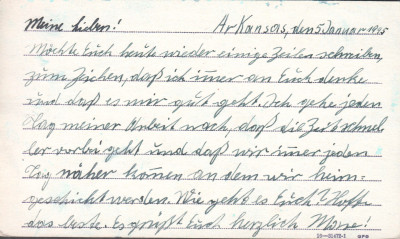 Meine Lieben! Arkansas, den 5 Januar 1945
Möchte Euch heute wieder einige Zeilen schreiben,
zum Zeichen, daß ich imer an Euch denke
und daß es mir gut geht. Ich gehe jeden
Tag meiner Arbeit nach, daß die Zeit schnel-
ler vorbei geht und daß wir imer jeden
Tag näher komen an dem wir heim-
geschickt werden. Wie geht es Euch? Hoffe
das beste. Es grüßt Euch herzlich